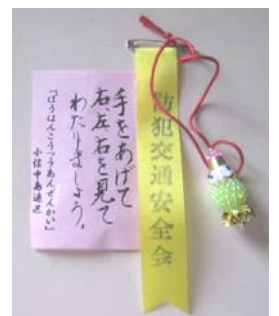 手をあげて
右、左、右を見て
わたりましょう。
「ぼうはんこうつうあんぜんかい」
小信中島連区
防犯交通安全会